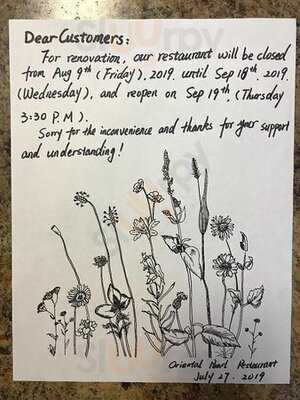 Dear Customers:
For renovation, our restaurant will be closed
from Aug 9th (Friday), 2019 until Sep 18th, 2019.
(Wednesday), and reopen on Sep 19th, (Thursday
3:30 P.M).
Sorry for the inconvenience and thanks for your support
and understanding!
Oriental Pearl Restaurant
July 27. 2019